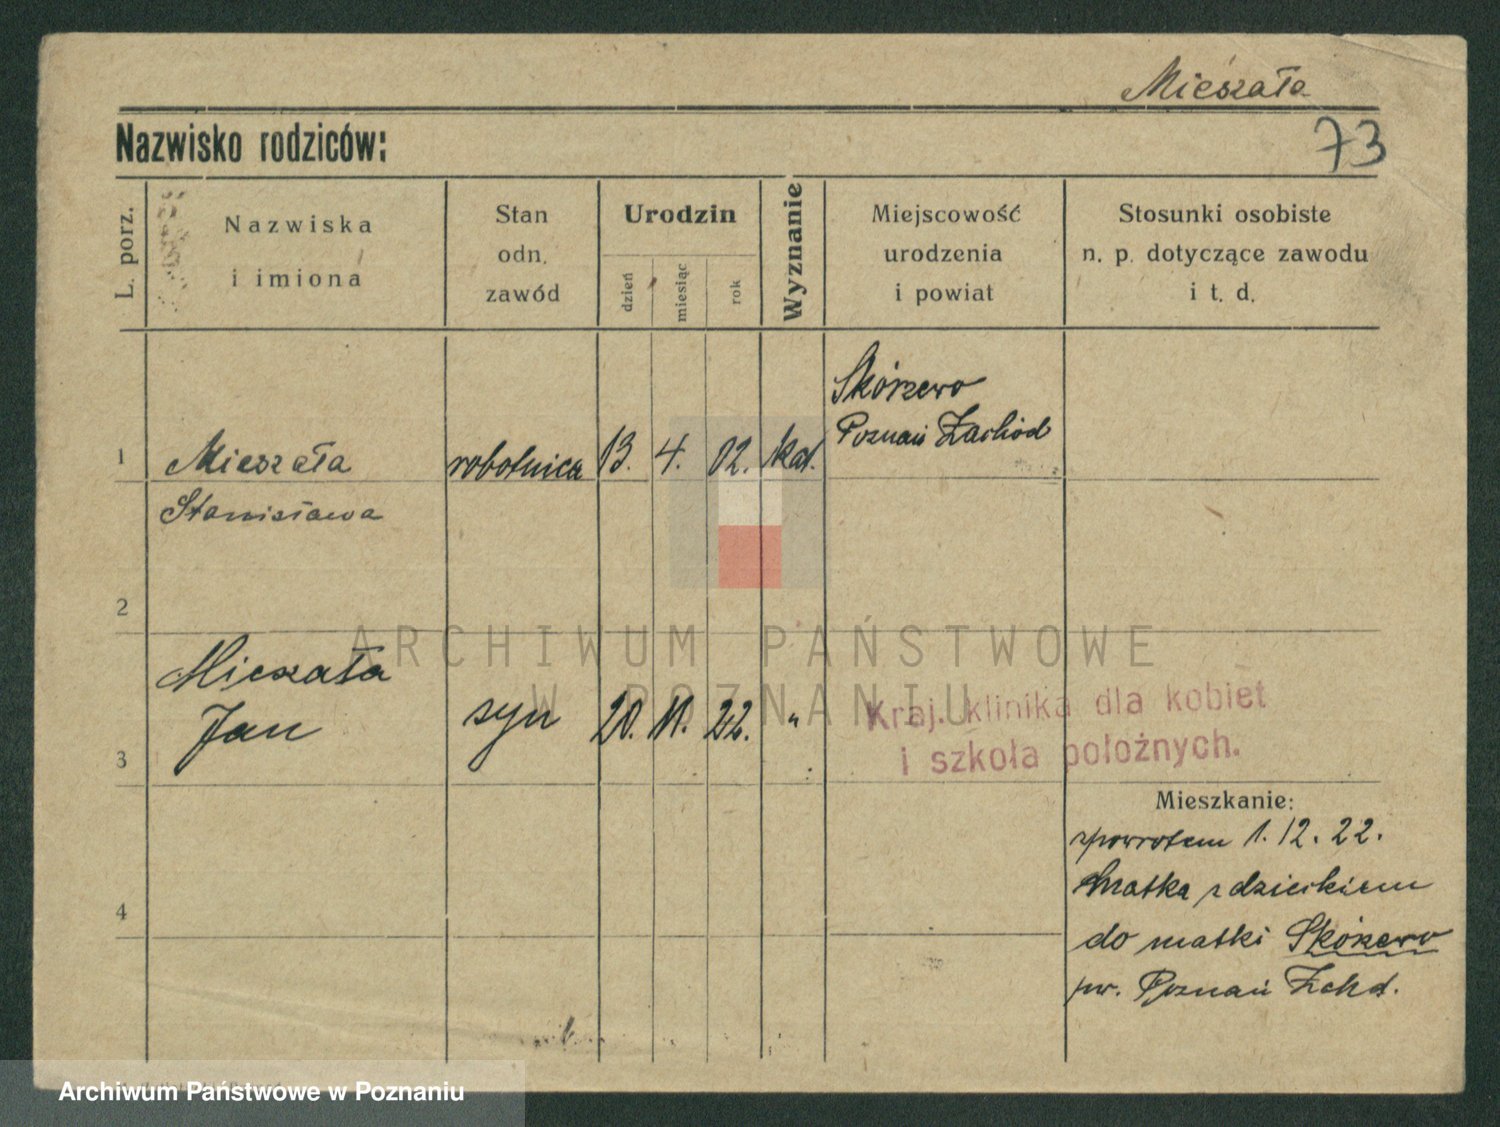 Mieszała
73
Nazwisko rodziców:
L. porz.
Nazwiska
i imiona
Stan
odn.
zawód
Urodzin
dzień
miesiąc
rok
Wyznanie
Miejscowość
urodzenia
i powiat
Stosunki osobiste
n. p. dotyczące zawodu
i t. d.
Skórzewo
Poznań Zachód
1 Mieszała robotnica 13. 4. 02. kat.
Stanisława
2
Mieszała
Jan syn 20. 11. 22. "
3
Kraj. klinika dla kobiet
i szkoła położnych.
Mieszkanie:
zpowrotem 1. 12. 22.
Matka z dzieckiem
4
do matki Skórzewo
pw. Poznań Zchd.
ARCHIWUM PAŃSTWOWE
W POZNANIU
Archiwum Państwowe w Poznaniu